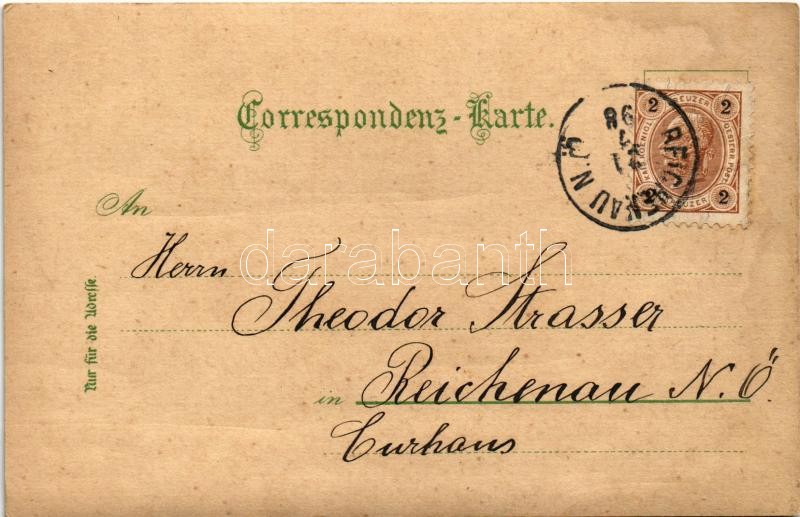 Correspondenz-Karte.
2 KREUZER 2
KAIS. KÖNIGL. OESTERR. POST.
2 KREUZER 2
REICHENAU N.Ö.
98
An
Herrn
Theodor Strasser
in Reichenau N.Ö.
Curhaus
Nur für die Adresse.
darabanth